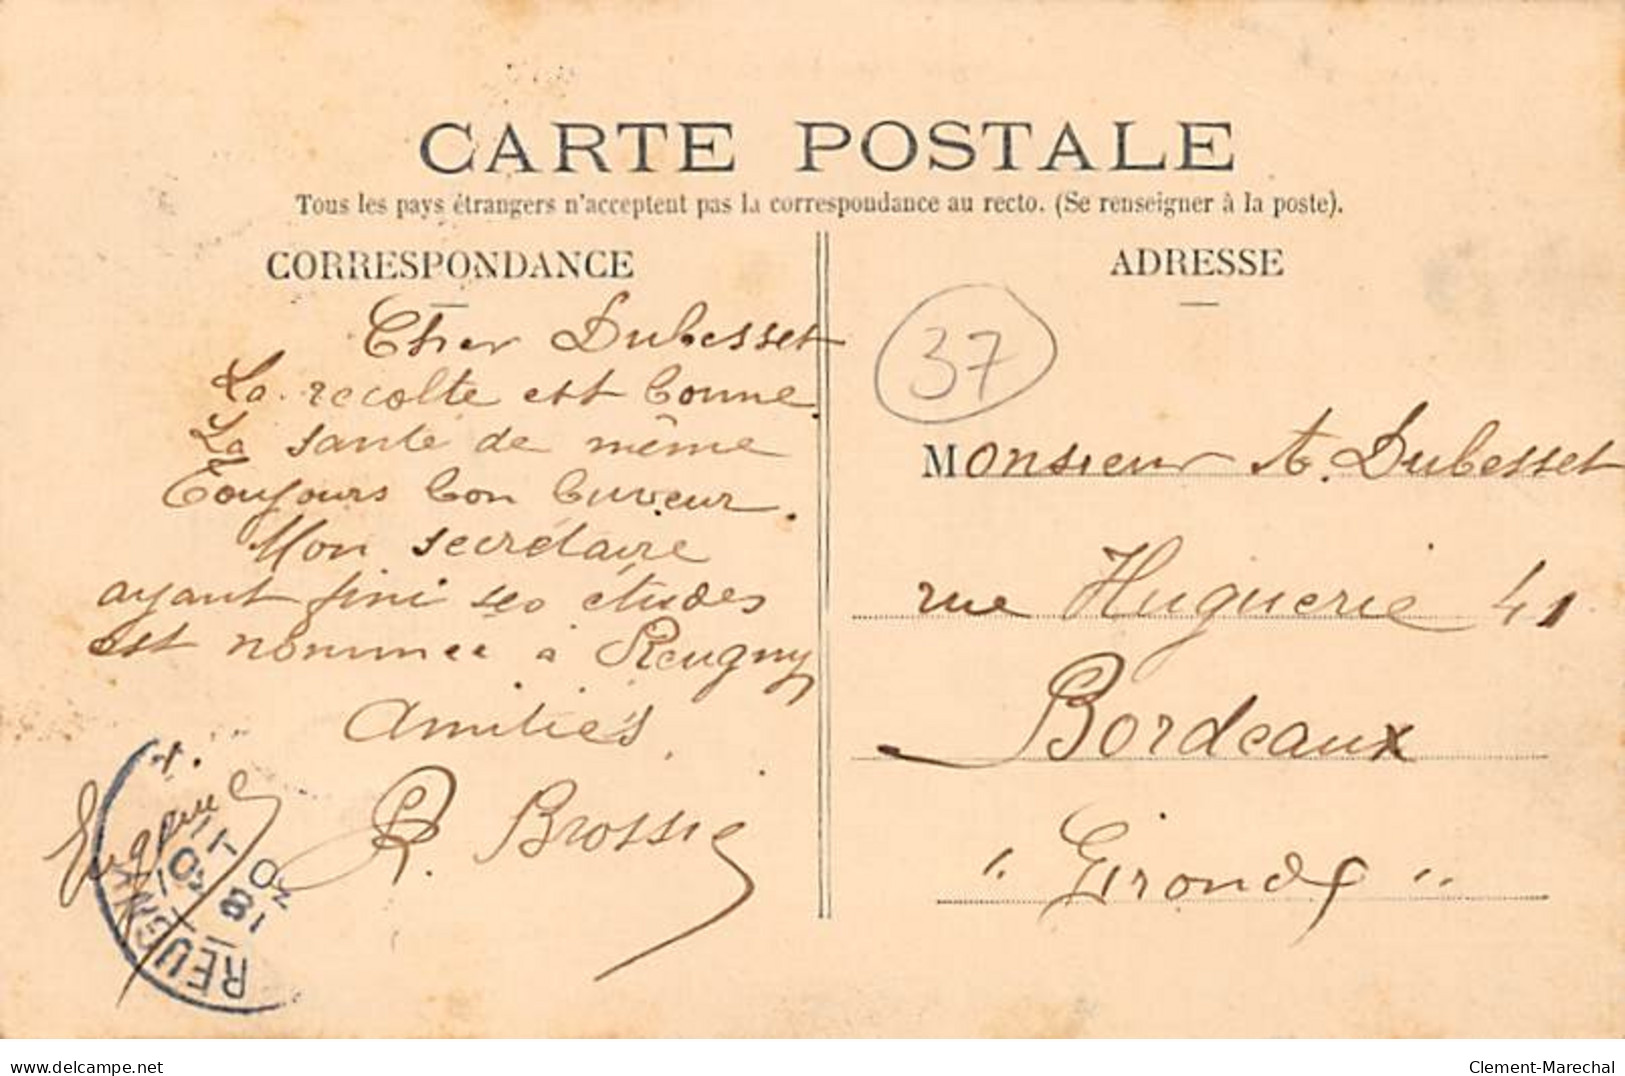 CARTE POSTALE
Tous les pays étrangers n'acceptent pas la correspondance au recto. (Se renseigner à la poste).
CORRESPONDANCE
Cher Dubesset
La recolte est bonne.
La santé de même
Toujours bon buveur.
Mon secrétaire
ayant fini ses études
est nommée à Reugny
Amitiés.
R. Brossie
REUGNY
ADRESSE
37
Monsieur A. Dubesset
rue Huguerie 41
Bordeaux
"Gironde"
delcampe.net
Clement-Marechal